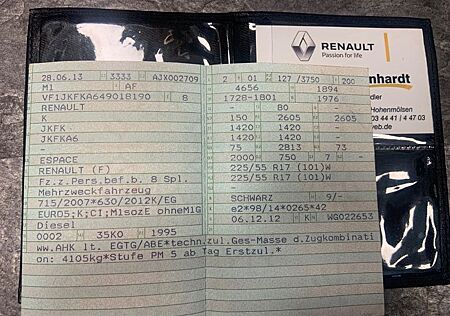 28.06.13 3333 AJX002709
M1 AF
VF1JKFKA649018190 8
RENAULT
K
JKFK
JKFKA6
-
ESPACE
RENAULT (F)
Fz.z.Pers.bef.b. 8 Spl.
Mehrzweckfahrzeug
715/2007*630/2012K/EG
EURO5;K;CI;M1sozE ohneM1G
Diesel
0002 35K0 1995
ww.AHK lt. EGTG/ABE*techn.zul.Ges-Masse d.Zugkombinati
on: 4105kg*Stufe PM 5 ab Tag Erstzul.*
2 01 127 /3750 200
4656 1894
1728-1801 1976
- 80 -
150 2605 2605
1420 1420 -
1420 1420 -
75 2813 73
2000 750 7 -
225/55 R17 (101)W
225/55 R17 (101)W
-
SCHWARZ 9/-
e2*98/14*0265*42
06.12.12 K WG022653
RENAULT
Passion for life
nhardt
dler
Hohenmölsen
03 44 41 / 4 47 03
eb.de